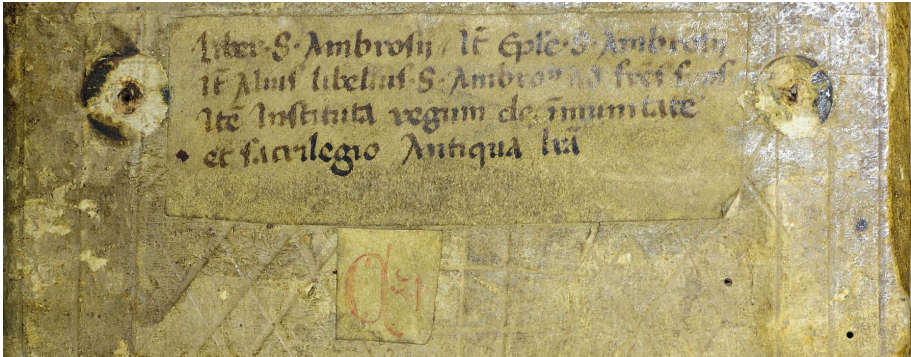 Liber · S · Ambrosij / It̄ Ep̄le · S · Ambrosij
It̄ Alius libellus · S · Ambrosij ad fr̄es suos
Itē Instituta regum de īmunitate
et sacrilegio Antiqua lr̄a